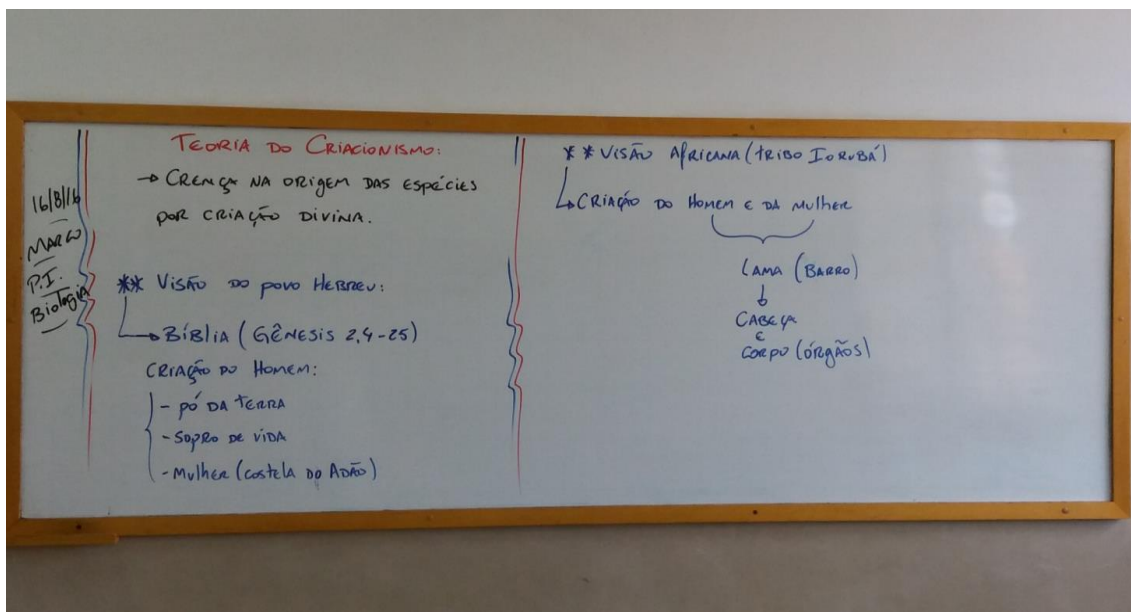 16/8/16
MARCO
P.I.
Biologia
TEORIA DO CRIACIONISMO:
→ CRENÇA NA ORIGEM DAS ESPÉCIES
POR CRIAÇÃO DIVINA.
** VISÃO DO POVO HEBREU:
→ BÍBLIA (GÊNESIS 2,4-25)
CRIAÇÃO DO HOMEM:
- PÓ DA TERRA
- SOPRO DE VIDA
- MULHER (COSTELA DO ADÃO)
** VISÃO AFRICANA (TRIBO IORUBÁ)
→ CRIAÇÃO DO HOMEM E DA MULHER
LAMA (BARRO)
↓
CABEÇA
E
CORPO (ÓRGÃOS)